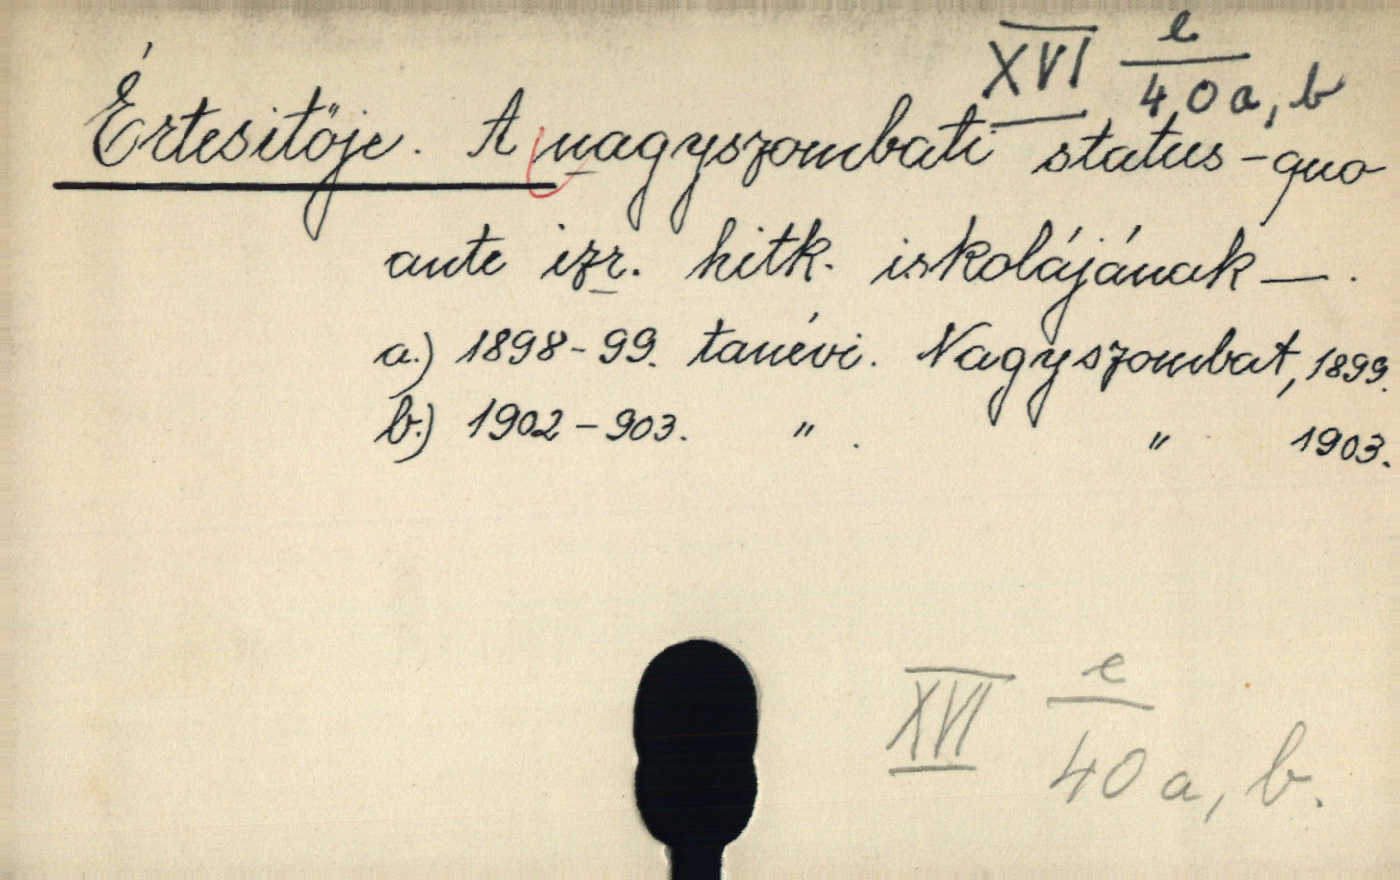 XVI e/40a, b
Értesitője. A nagyszombati status-quo
ante izr. hitk. iskolájának —.
a.) 1898-99. tanévi. Nagyszombat, 1899.
b.) 1902-903. " . " 1903.
XVI e/40 a, b.